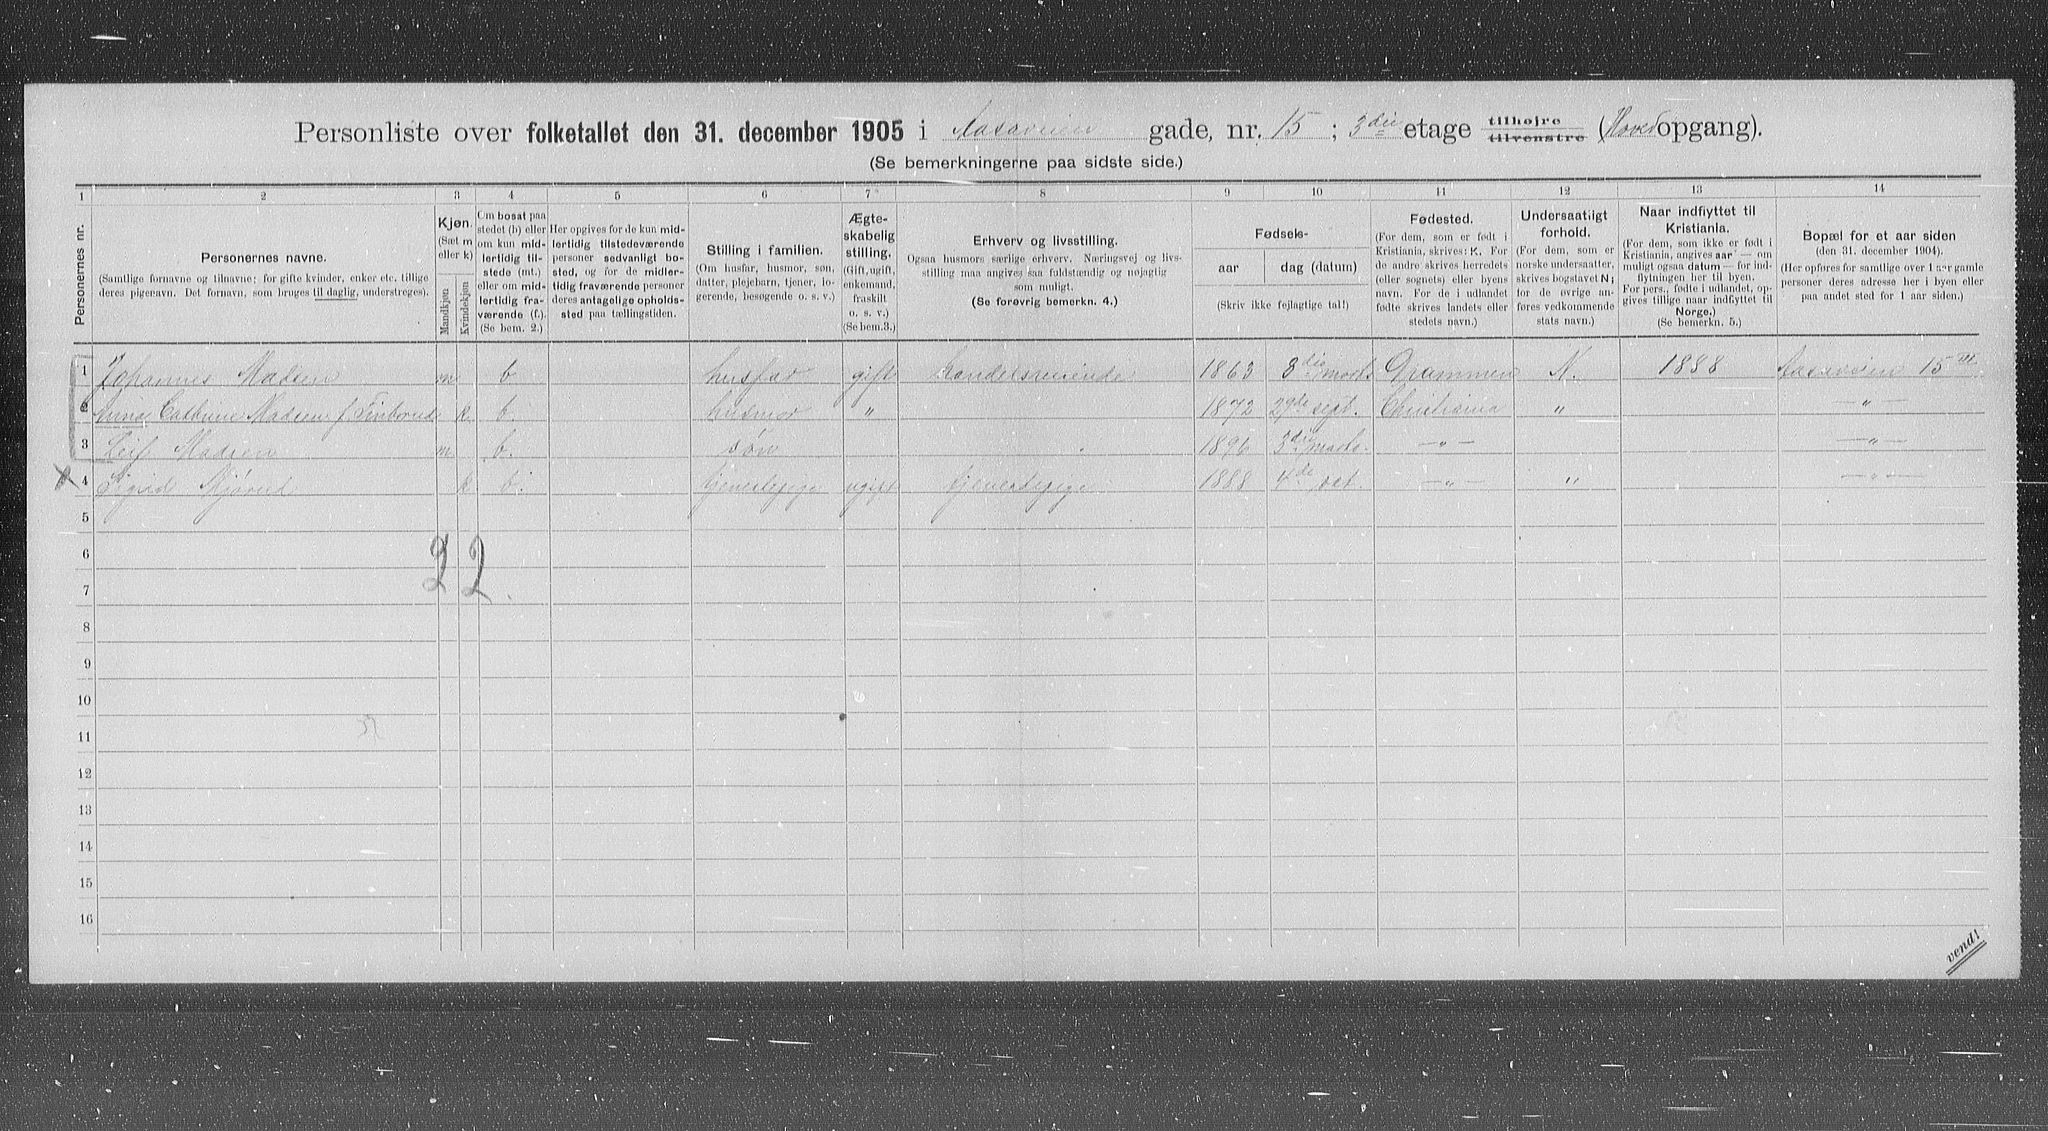 Personliste over folketallet den 31. december 1905 i Aasaveien gade, nr. 15 ; 3die etage tilhøjre tilvenstre (Hovedopgang).
(Se bemerkningerne paa sidste side.)
1 2 3 4 5 6 7 8 9 10 11 12 13 14
Personernes nr.
Personernes navne.
(Samtlige fornavne og tilnavne; for gifte kvinder, enker etc. tillige
deres pigenavn. Det fornavn, som bruges til daglig, understreges).
Kjøn.
(Sæt m
eller k)
Mandkjøn
Kvindekjøn
Om bosat paa
stedet (b) eller
om kun mid-
lertidig til-
stede (mt.)
eller om mid-
lertidig fra-
værende (f.).
(Se bem. 2.)
Her opgives for de kun mid-
lertidig tilstedeværende
personer sedvanligt bo-
sted, og for de midler-
tidig fraværende personer
deres antagelige opholds-
sted paa tællingstiden.
Stilling i familien.
(Om husfar, husmor, søn,
datter, plejebarn, tjener, lo-
gerende, besøgende o. s. v.)
Ægte-
skabelig
stilling.
(Gift, ugift,
enkemand,
fraskilt
o. s. v.)
(Se bem. 3.)
Erhverv og livsstilling.
Ogsaa husmors særlige erhverv. Næringsvej og livs-
stilling maa angives saa fuldstændig og nøjagtig
som muligt.
(Se forøvrig bemerkn. 4.)
Fødsels-
aar
dag (datum)
(Skriv ikke fejlagtige tal!)
Fødested.
(For dem, som er født i
Kristiania, skrives: K. For
de andre skrives herredets
(eller sognets) eller byens
navn. For de i udlandet
fødte skrives landets eller
stedets navn.)
Undersaatligt
forhold.
(For dem, som er
norske undersaatter,
skrives bogstavet N;
for de øvrige an-
føres vedkommende
stats navn.)
Naar indflyttet til
Kristiania.
(For dem, som ikke er født i
Kristiania, angives aar — om
muligt ogsaa datum — for ind-
flytningen her til byen.
For pers., fødte i udlandet, op-
gives tillige naar indflyttet til
Norge.)
(Se bemerkn. 5.)
Bopæl for et aar siden
(den 31. december 1904).
(Her opføres for samtlige over 1 aar gamle
personer deres adresse her i byen eller
paa andet sted for 1 aar siden.)
1 Johannes Madsen m b husfar gift handelsreisende 1863 3die marts Drammen N. 1888 Aasaveien 15 III.
2 Anna Cathrine Madsen f. k b. husmor " 1872 29de sept. Christiania " — " —
3 Leif Madsen m b. søn 1896 3die marts. — " — — " —
x 4 Sigrid k b. tjenestepige ugift tjenestepige 1888 4de oct. — " — " — " —
5
6
2 2.
7
8
9
10
11
12
13
14
15
16
vend!